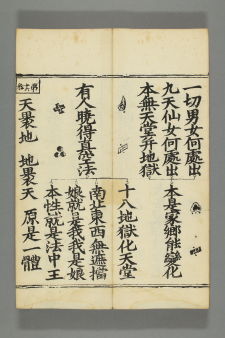 一切男女何處出
九天仙女何處出
本無天堂并地獄
本是家鄉能變化
十八地獄化天堂
有人曉得真空法
南北東西無遮擋
娘就是我我是娘
本性就是法中王
天褁地 地褁天 原是一體